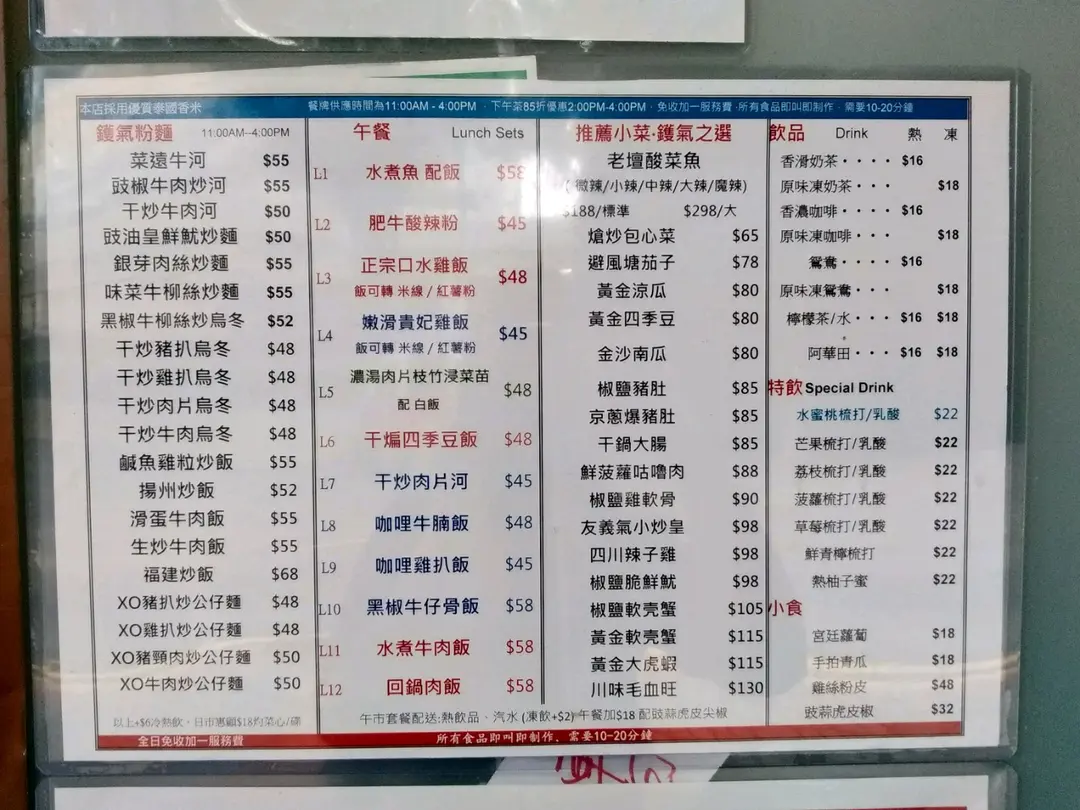 本店採用優質泰國香米
餐牌供應時間為11:00AM - 4:00PM ．下午茶85折優惠2:00PM-4:00PM．免收加一服務費．所有食品即叫即制作．需要10-20分鐘
鑊氣粉麵 11:00AM--4:00PM
菜遠牛河 $55
豉椒牛肉炒河 $55
干炒牛肉河 $50
豉油皇鮮魷炒麵 $50
銀芽肉絲炒麵 $55
味菜牛柳絲炒麵 $55
黑椒牛柳絲炒烏冬 $52
干炒豬扒烏冬 $48
干炒雞扒烏冬 $48
干炒肉片烏冬 $48
干炒牛肉烏冬 $48
鹹魚雞粒炒飯 $55
揚州炒飯 $52
滑蛋牛肉飯 $55
生炒牛肉飯 $55
福建炒飯 $68
XO豬扒炒公仔麵 $48
XO雞扒炒公仔麵 $48
XO豬頸肉炒公仔麵 $50
XO牛肉炒公仔麵 $50
以上+$6冷熱飲．日市惠顧$18灼菜心/碟
全日免收加一服務費
午餐 Lunch Sets
L1 水煮魚 配飯 $58
L2 肥牛酸辣粉 $45
L3 正宗口水雞飯 $48
飯可轉 米線 / 紅薯粉
L4 嫩滑貴妃雞飯 $45
飯可轉 米線 / 紅薯粉
L5 濃湯肉片枝竹浸菜苗 $48
配 白飯
L6 干煸四季豆飯 $48
L7 干炒肉片河 $45
L8 咖哩牛腩飯 $48
L9 咖哩雞扒飯 $45
L10 黑椒牛仔骨飯 $58
L11 水煮牛肉飯 $58
L12 回鍋肉飯 $58
推薦小菜·鑊氣之選
老壇酸菜魚
( 微辣/小辣/中辣/大辣/魔辣)
$188/標準 $298/大
熗炒包心菜 $65
避風塘茄子 $78
黃金涼瓜 $80
黃金四季豆 $80
金沙南瓜 $80
椒鹽豬肚 $85
京蔥爆豬肚 $85
干鍋大腸 $85
鮮菠蘿咕嚕肉 $88
椒鹽雞軟骨 $90
友義氣小炒皇 $98
四川辣子雞 $98
椒鹽脆鮮魷 $98
椒鹽軟壳蟹 $105
黃金軟壳蟹 $115
黃金大虎蝦 $115
川味毛血旺 $130
午市套餐配送:熱飲品、汽水 (凍飲+$2) 午餐加$18 配豉蒜虎皮尖椒
所有食品即叫即制作．需要10-20分鐘
飲品 Drink 熱 凍
香滑奶茶････ $16
原味凍奶茶･･･ $18
香濃咖啡････ $16
原味凍咖啡･･･ $18
鴛鴦････ $16
原味凍鴛鴦･･･ $18
檸檬茶/水･･･ $16 $18
阿華田･･･ $16 $18
特飲 Special Drink
水蜜桃梳打/乳酸 $22
芒果梳打/乳酸 $22
荔枝梳打/乳酸 $22
菠蘿梳打/乳酸 $22
草莓梳打/乳酸 $22
鮮青檸梳打 $22
熱柚子蜜 $22
小食
宮廷蘿蔔 $18
手拍青瓜 $18
雞絲粉皮 $48
豉蒜虎皮椒 $32